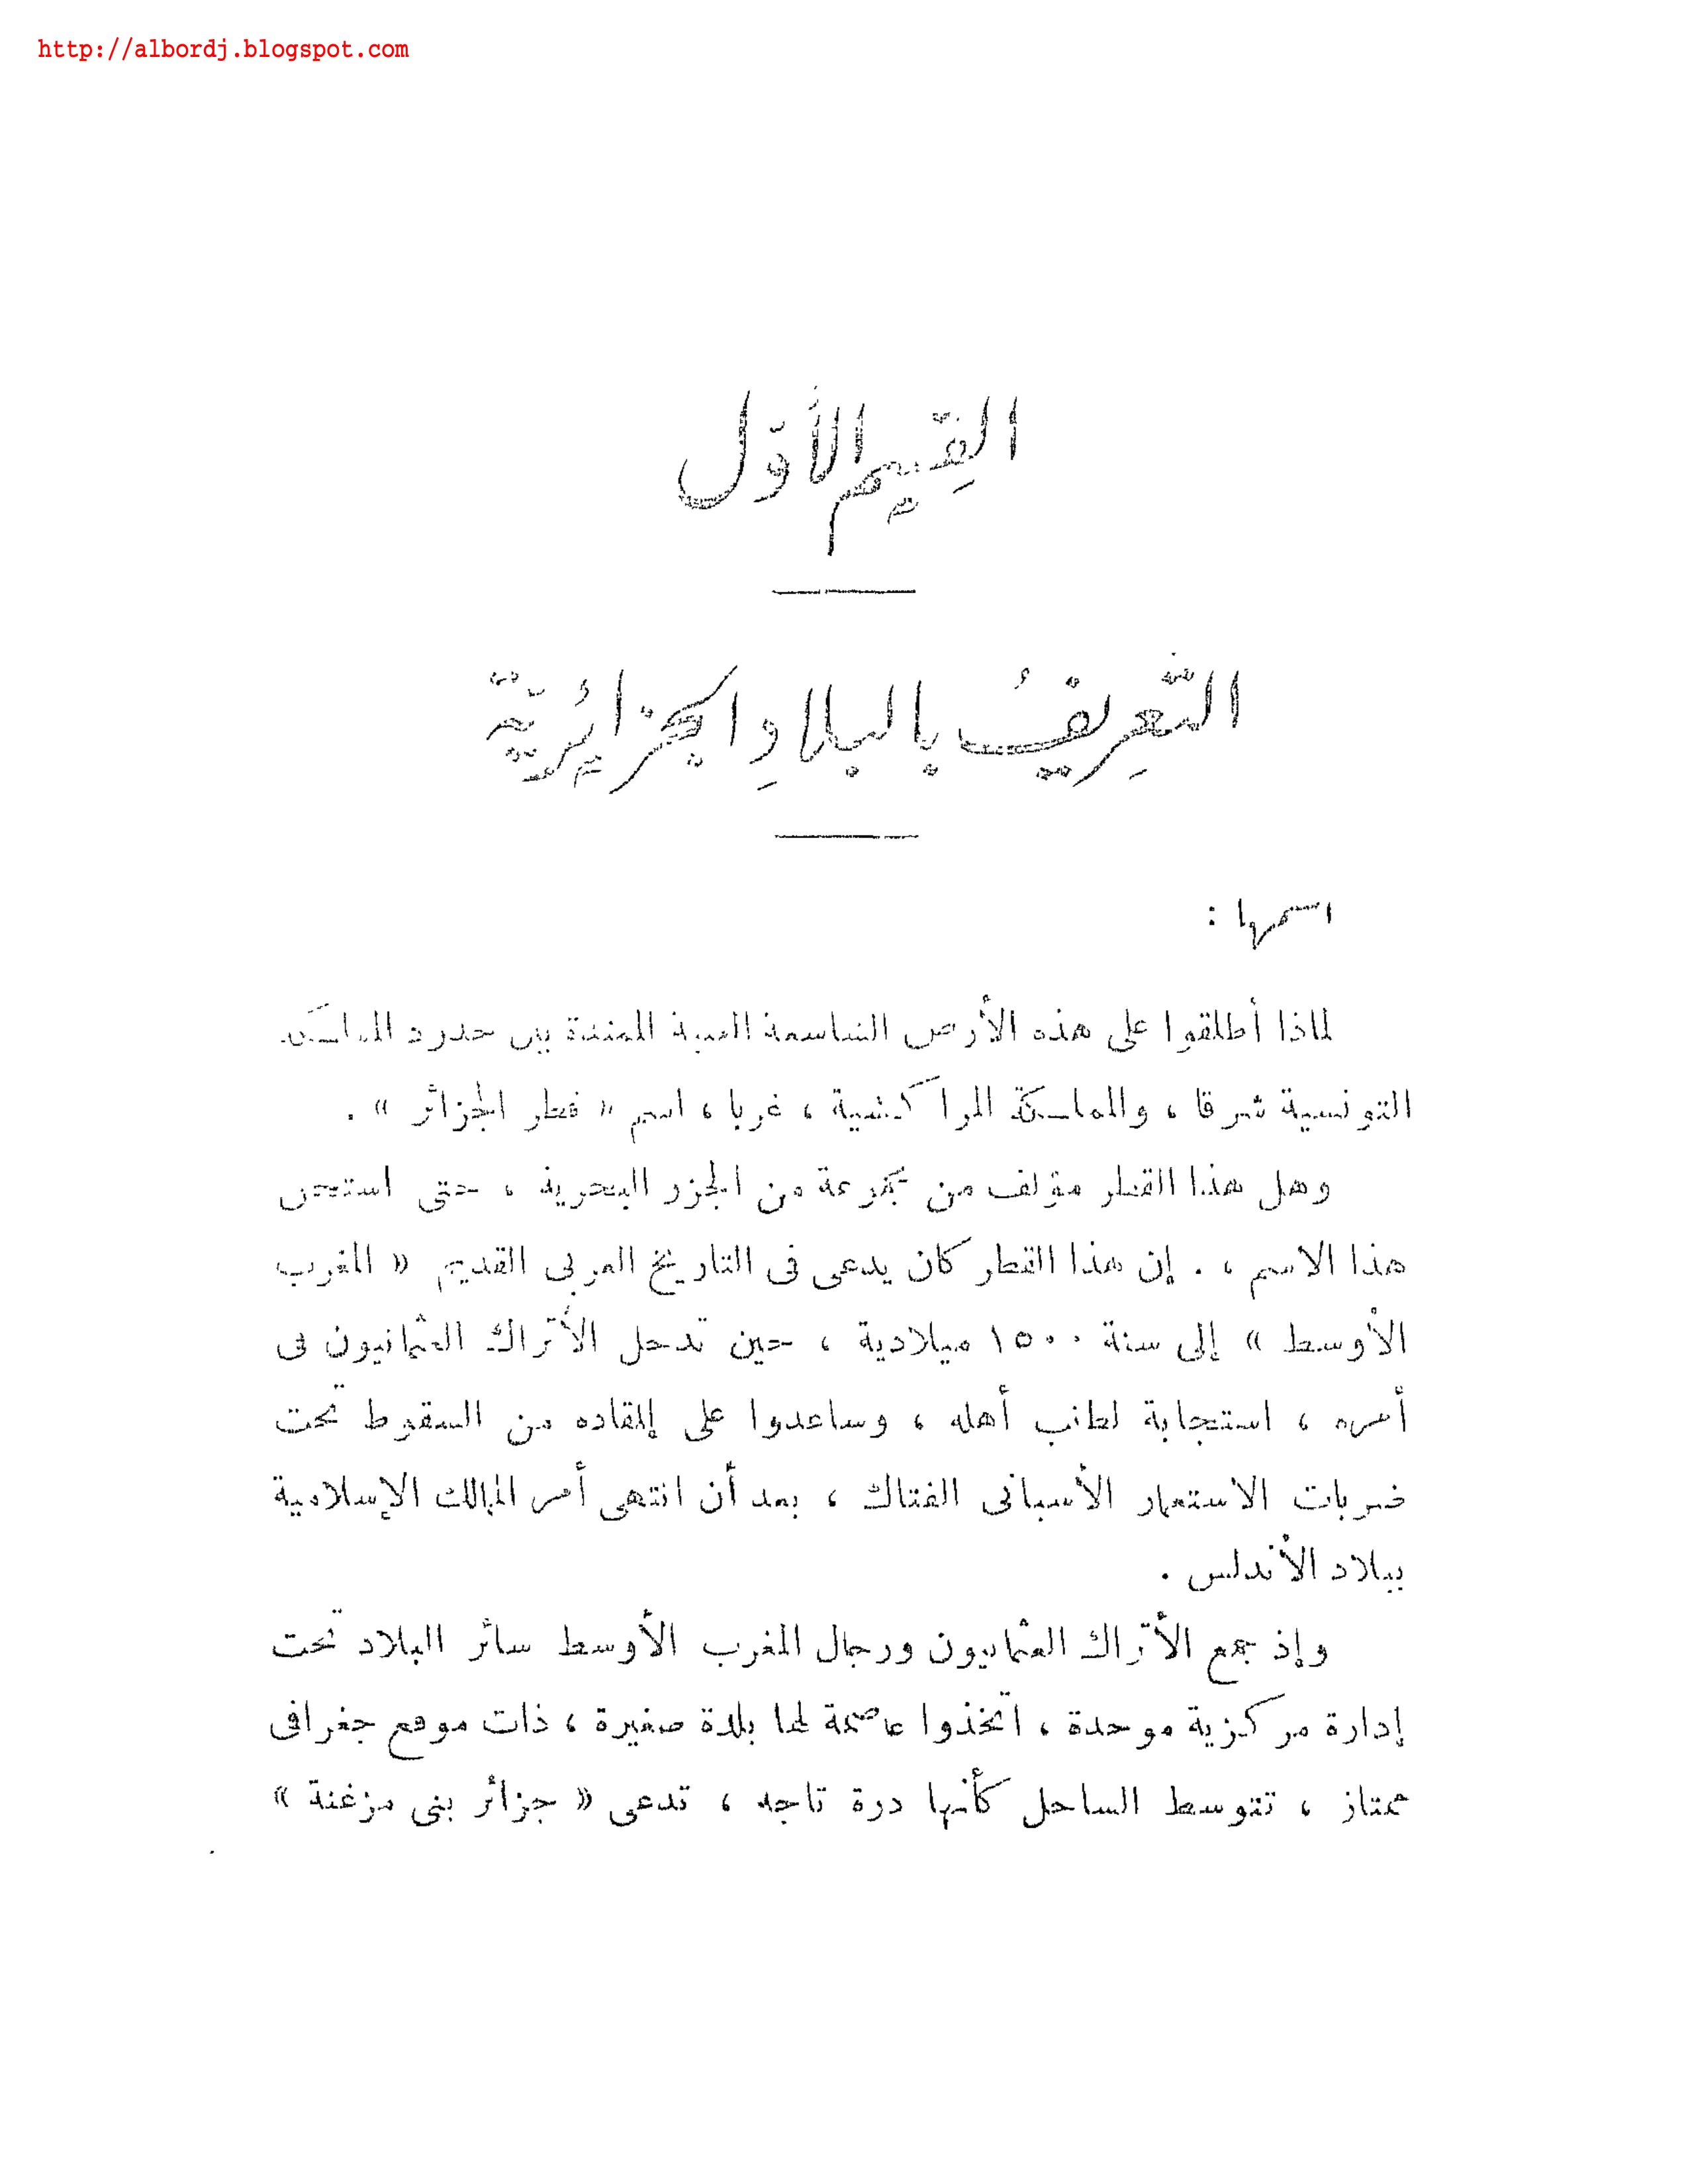 http://albordj.blogspot.com
القِسِم الأوّل
التَّعِريفُ بالبلادِ الجزائِريّة
اسمها :
لماذا أطلقوا على هذه الأرض الشاسعة الغنية الممتدة بين حدود المملكة
التونسية شرقا ، والمملكة المراكشية ، غربا ، اسم « قطر الجزائر » .
وهل هذا القطر مؤلف من مجموعة من الجزر البحرية ، حتى استحق
هذا الاسم ، . إن هذا القطر كان يدعى فى التاريخ العربى القديم « المغرب
الأوسط » إلى سنة ١٥٠٠ ميلادية ، حين تدخل الأتراك العثمانيون فى
أمره ، استجابة لطلب أهله ، وساعدوا على إنقاده من السقوط تحت
ضربات الاستعمار الأسبانى الفتاك ، بعد أن انتهى أمر الممالك الإسلامية
ببلاد الأندلس .
وإذ جمع الأتراك العثمانيون ورجال المغرب الأوسط سائر البلاد تحت
إدارة مركزية موحدة ، اتخذوا عاصمة لها بلدة صغيرة ، ذات موقع جغرافى
ممتاز ، تتوسط الساحل كأنها درة تاجه ، تدعى « جزائر بنى مزغنة »